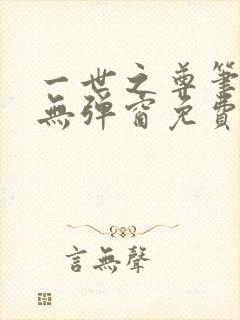 一世之尊筆
無彈窗免費
言無聲